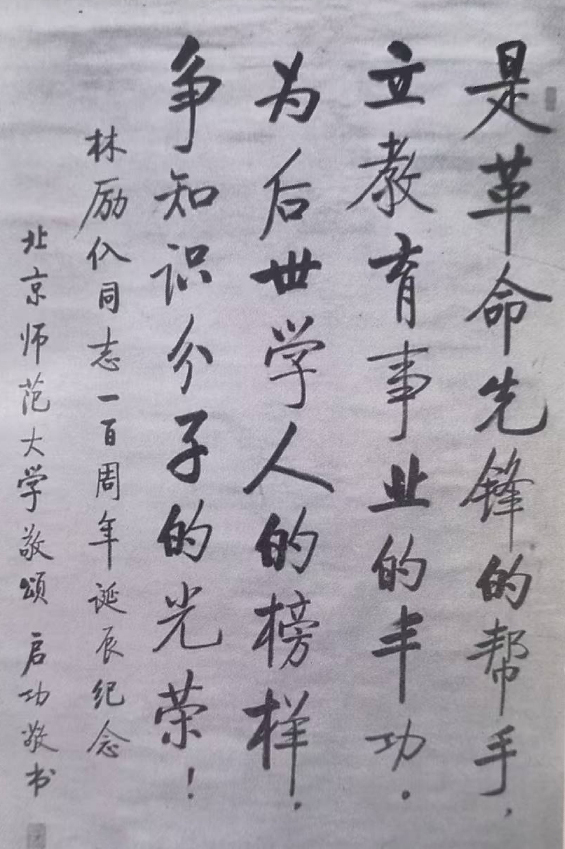 是革命先锋的帮手，
立教育事业的丰功。
为后世学人的榜样，
争知识分子的光荣！
林励仫同志一百周年诞辰纪念
北京师范大学敬颂 启功敬书